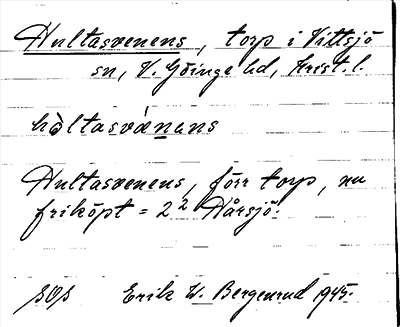 Hultasvenens, torp i Vittsjö
sn, V. Göinge hd, Krist. l.
hòltasvänans
Hultasvenens, förr torp, nu
friköpt = 2² Hårsjö.
SOS Erik W. Bergenrud 1945.